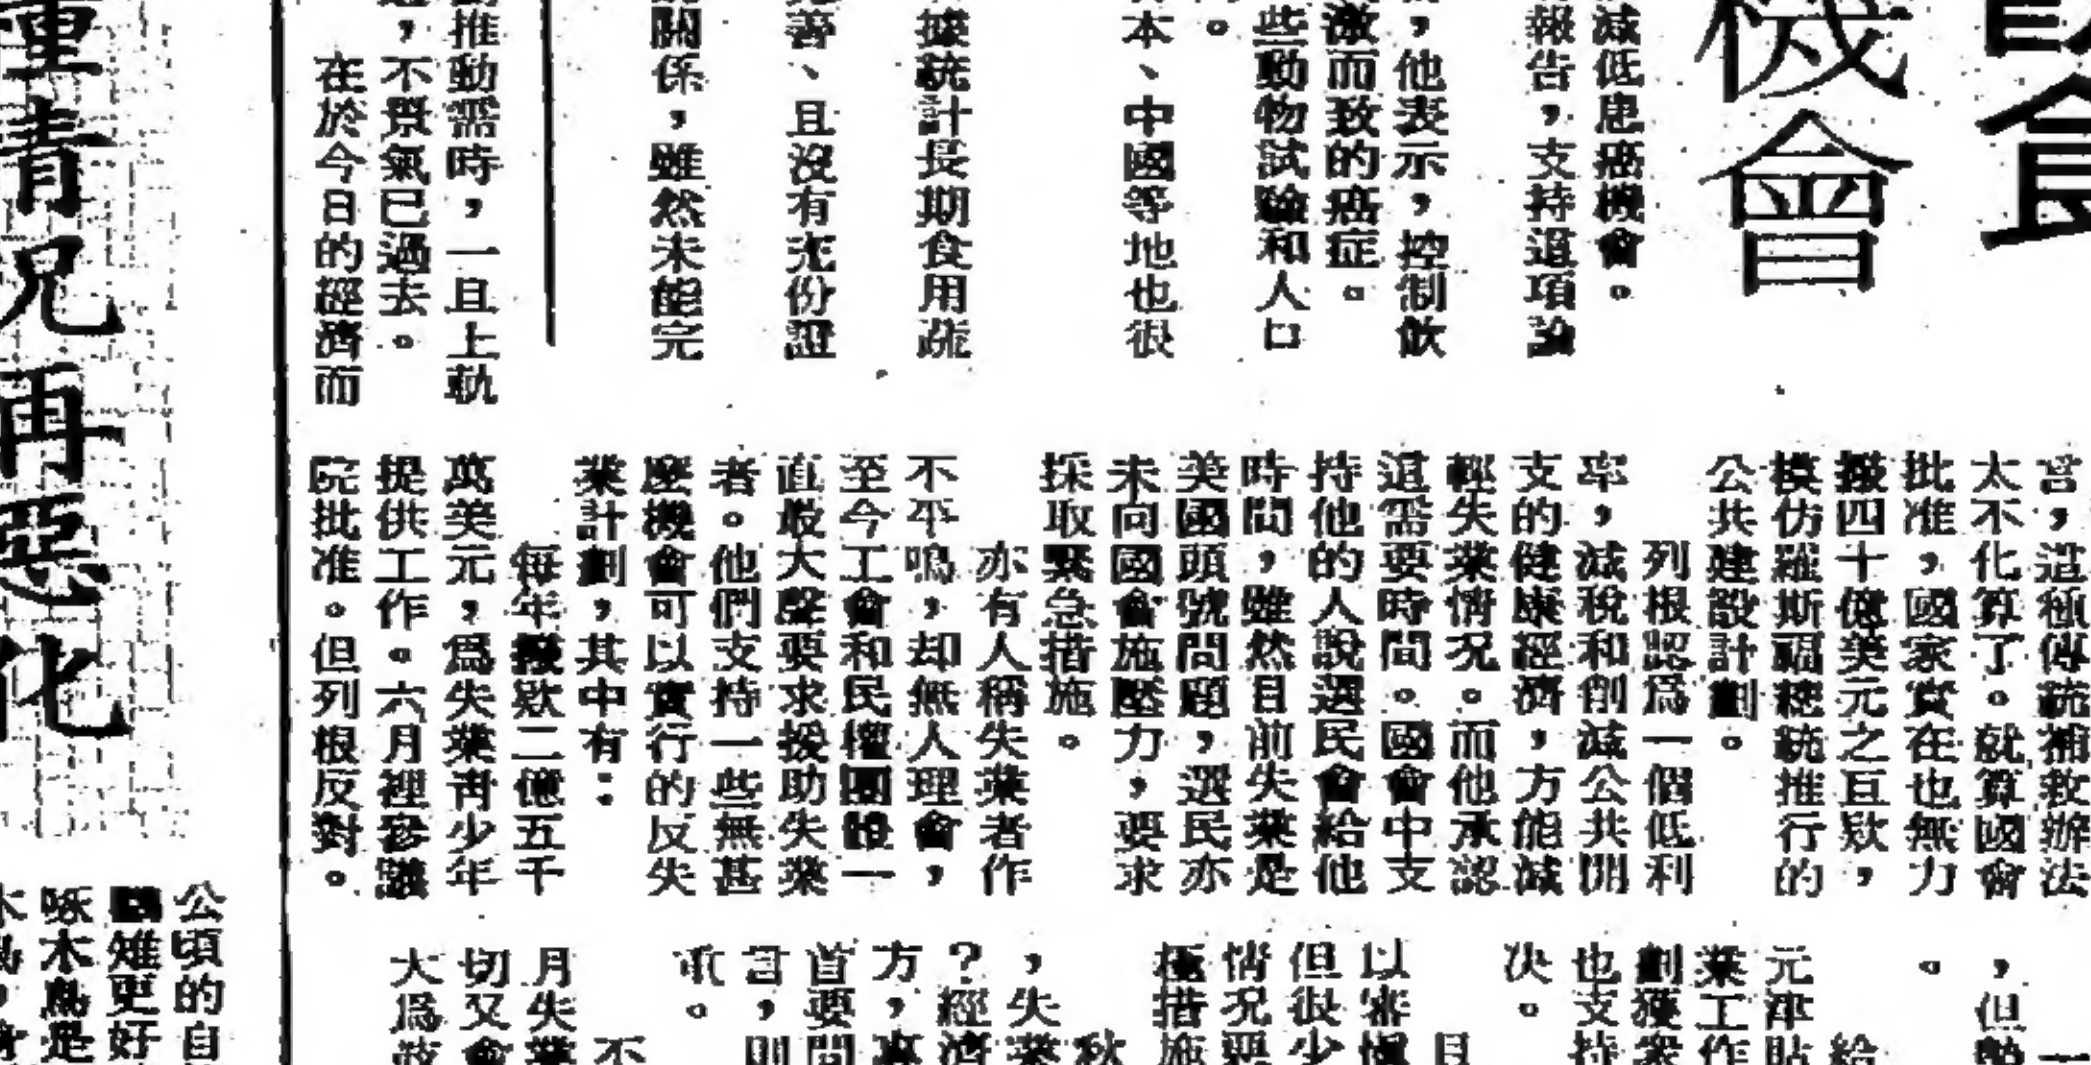 飲食
機會
減低患癌機會。
報告,支持這項論
,他表示,控制飲
激而致的癌症。
些動物試驗和人口
。
本、中國等地也很
據統計長期食用蔬
善、且沒有充份證
關係,雖然未能完
推動需時,一旦上軌
,不景氣已過去。
在於今日的經濟而
宮,這種傳統補救辦法
太不化算了。就算國會
批准,國家實在也無力
撥四十億美元之巨欵,
模仿羅斯福總統推行的
公共建設計劃。
列根認爲一個低利
率,減稅和削減公共開
支的健康經濟,方能減
輕失業情况。而他承認
這需要時間。國會中支
持他的人說選民會給他
時間,雖然目前失業是
美國頭號問題,選民亦
未向國會施壓力,要求
採取緊急措施。
亦有人稱失業者作
不平鳴,却無人理會,
至今工會和民權團體一
直敢大聲要求援助失業
者。他們支持一些無甚
麼機會可以實行的反失
業計劃,其中有:
每年撥欵二億五千
萬美元,爲失業青少年
提供工作。六月裡參議
院批准。但列根反對。
情况再惡化
,但
。
給
元津貼
業工作
劃獲衆
也支持
决。
目
以審愼
但很少
情况惡
極措施
秋
,失業
?經濟
方,專
首要問
言,則
重。
不
月失業
切又會
大爲歧
公頃的自
雉更好
啄木鳥是